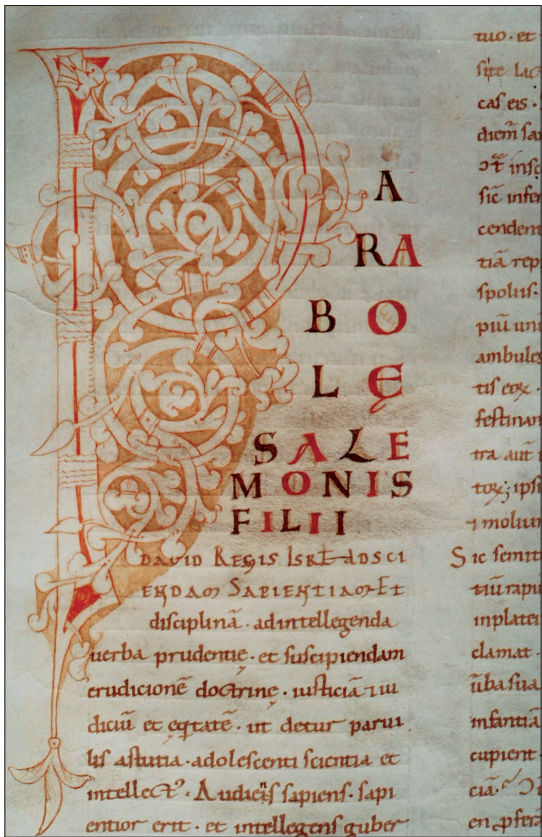 P
A
RA
BO
LĘ
SALE
MONIS
FILII
DAVID REGIS ISRL̄ ADSCI
ENDAM SAPIENTIAM ET
disciplinā · adintellegenda
uerba prudentię · et suscipiendam
erudicionē doctrinę · iusticiā ⁊ iu
diciū et ęqtatē · ut detur parui
lis astutia · adolescenti scientia et
intellectꝰ · Audiens sapiens · sapi
entior erit · et intellegens guber
tuo · et
site lac
cas eis ·
diem̄ sa
insc
sic infer
cendent
tiā rep
spoliis ·
piū uni
ambules
tis eoꝝ ·
festinan
tra aut
ipsi
⁊ moliun
Sic semit
tiū rapiu
inplatei
clamat ·
ūba sua
infantiā
cupient
ciā ·